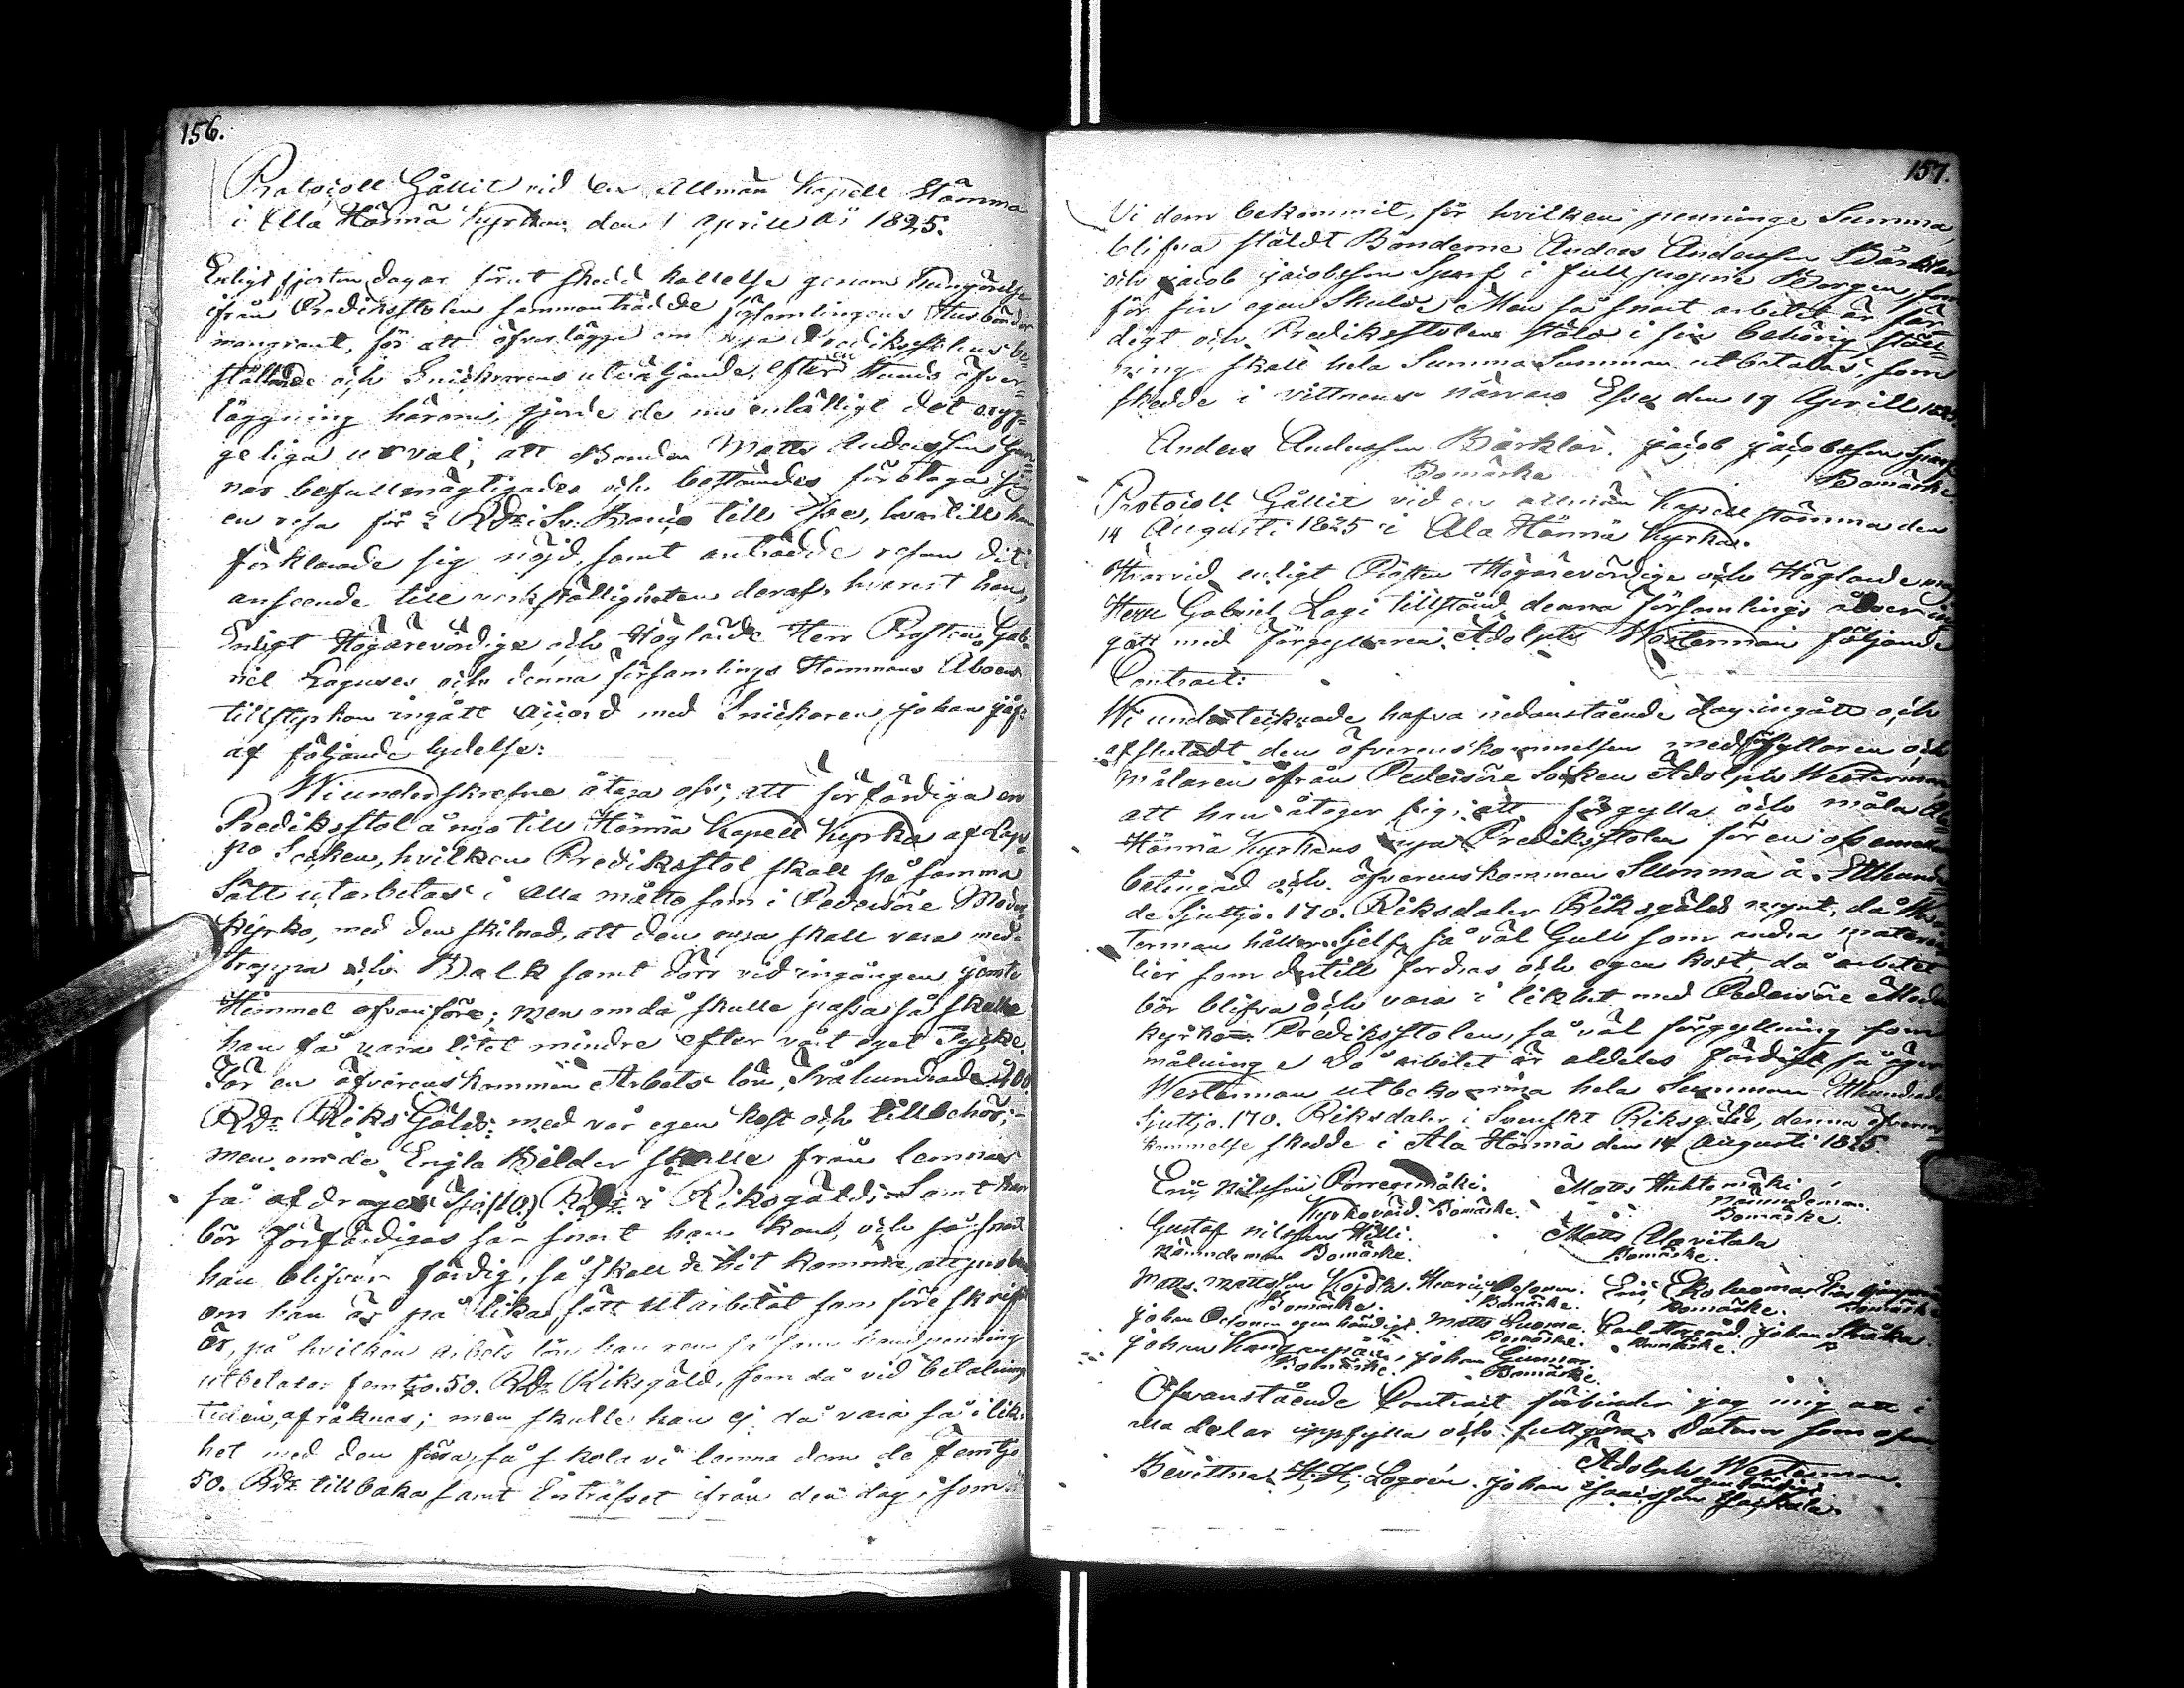 156.
Protocoll hållit vid en Allmän Kapell Stämma
i Ala Härmä Kyrkan den 1 Aprill år 1825.
Enligt fjorton dagar förut skedd kallelse genom Kungörelse
ifrån Predikostolen sammanträdde församlingens Husbönder
mangrant, för att öfverlägga om nya Predikostolens be=
ställande och Snickarens utväljande, efter en stunds öfver=
läggning härom, gjorde de nu enhälligt det oryg=
geliga urval; att Bonden Matts Andersson Gun=
nar befullmägtigades och bestämdes företaga sig
en resa för 2 Rdr i Sv. Banco till Esse, hvartill han
förklarade sig nöjd, samt anträdde resan dit i
anseende till verkställigheten deraf, hvarest han,
Enligt Högärevördige och Höglärde Herr Prosten Gab=
riel Laguses och denna församlings Hemmans Åboers
tillstyrkan ingått accord med Snickaren Johan
af följande lydelse:
Wi underskrefne åtaga oss, att förfärdiga en
Predikstol å nyo till Härmä Kapell Kyrka af Lap=
po Socken, hvilken Predikostol skall på samma
sätt utarbetas i alla måtto som i Pedersöre Moder
kyrko, med den skilnad, att den nya skall vara med
trappa och Balk samt dörr vid ingången jemte
Himmel ofvanföre; men om då skulle passa så skulle
han få vara litet mindre efter vårt eget Tycke.
För en öfverenskommen Arbets lön, Tvåhundrade 200
Rdr Riks Gälds: med vår egen kost och tillbehör;
men om de Engla Bilder skulle från lemnas
så afdrages Tjo (10) Rdr i Riksgälds: Samt han
bör förfärdigas så snart han kan, och så snart
han blifver färdig, så skall de hit komma, att profva
om han är på lika sätt utarbetat som före skrifvit
är, på hvilken arbets lön han nu så som handpenning
utbetalas femtjo. 50. Rdr Riksgäld, som då vid betalnings
tiden, afräknas; men skulle han ej då vara så i lik=
het med den förra, så skola vi lemna dem de femtjo
50. Rdr tillbaka samt Inträsset ifrån den dag, som
157.
Vi dem bekommit, för hvilken penninge Summa,
blifva stäldt Bönderne Anders Andersson Bärklar
och Jacob Jacobsson Sparf i full Borgen, som
för sin egen Skuld; Men så snart arbetet är fär=
digt och Predikostolen stäld i sin behörig ställ=
ning skall hela Summa Summan utbetalas, som
skedde i vittnens närvaro Esse den 19 Aprill 1825.
Anders Andersson Bärklar. Jacob Jacobsson Sparf
Bomärke Bomärke
Protocoll hållit vid en allmän Kapell stämma den
14 Augusti 1825 i Ala Härmä Kyrka.
Hvarvid enligt Prosten Högärevördige och Höglärde
Herr Gabriel Lagi tillstånd, denna församlings
gått med förgyllaren Adolph Westerman följande
Contract:
Wi undertecknade hafva nedanstående dag ingått och
afslutadt den öfverenskommelsen med förgyllaren och
Målaren ifrån Pedersöre Socken Adolph Westerman,
att han åtager sig, att förgylla och måla Ala
Härmä Kyrkans nya Predikostolen för en oss emellan
betingad och öfverenskommen Summa å Etthundra=
de Sjuttjo. 170. Riksdaler Riksgälds mynt, då Wes=
terman håller sjelf så väl Gull som andra materia=
lier som dertill fordras och egen kost, då arbetet
bör blifva och vara i likhet med Pedersöre Moder
kyrko Predikostolen, så väl förgyllning som
målning. Då arbetet är aldeles färdigt, så äger
Westerman utbekomma hela Summan Etthundrade
Sjuttjo. 170. Riksdaler i Svenskt Riksgäld, denna öfverens
kommelse skedde i Ala Härmä den 14 Augusti 1825.
Eric Nilsson Porrenmäki. Matts Huhtamäki
Kyrkovärd. Bomärke. Nämndeman.
Bomärke.
Gustaf Nilsson Hilli. Matts Alavitala
Nämndeman Bomärke. Bomärke.
Matts Mattsson Kojola. Eric Ekoluoma
Bomärke. Bomärke. Bomärke. Bomärke
Johan egen händigt. Matts Luoma. Carl Johan
Bomärke. Bomärke.
Johan Kangas Johan Gunnar.
Bomärke. Bomärke.
Ofvanstående Contract förbinder jag mig att i
alla delar uppfylla och fullgöra. Datum som ofvan
Adolph Westerman.
egen händigt
Bevittna. H. H. Logrén. Johan Isacsson